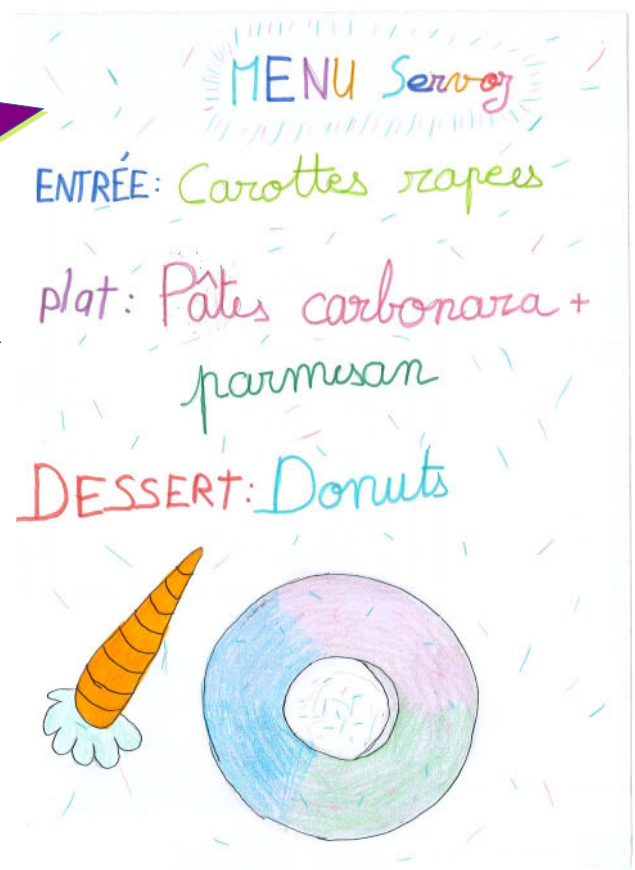 MENU Servoz
ENTRÉE: Carottes rapées
plat: Pâtes carbonara +
parmesan
DESSERT: Donuts